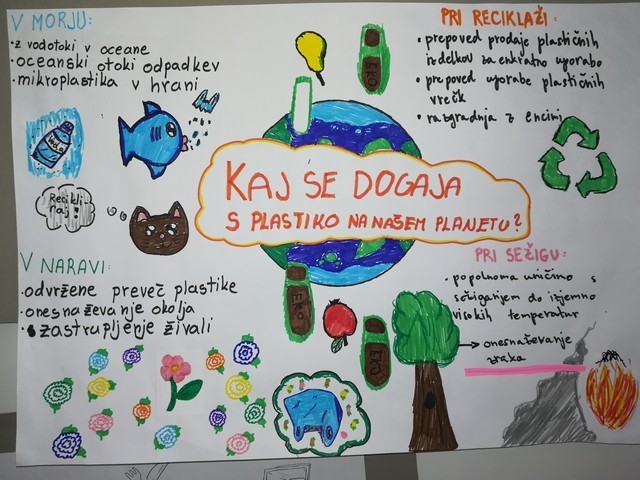 V MORJU:
• z vodotoki v oceane
• oceanski otoki odpadkev
• mikroplastika v hrani
Voda
Recikliraj!
KAJ SE DOGAJA
S PLASTIKO NA NAŠEM PLANETU?
EKO
PRI RECIKLAŽI:
• prepoved prodaje plastičnih
izdelkov za enkratno uporabo
• prepoved uporabe plastičnih
vrečk
• razgradnja z encimi
V NARAVI:
• odvržene preveč plastike
• onesnaževanje okolja
• zastrupljenje živali
EKO
EKO
PRI SEŽIGU:
• popolnoma uničimo s
sežiganjem do izjemno
visokih temperatur
→ onesnaževanje
zraka